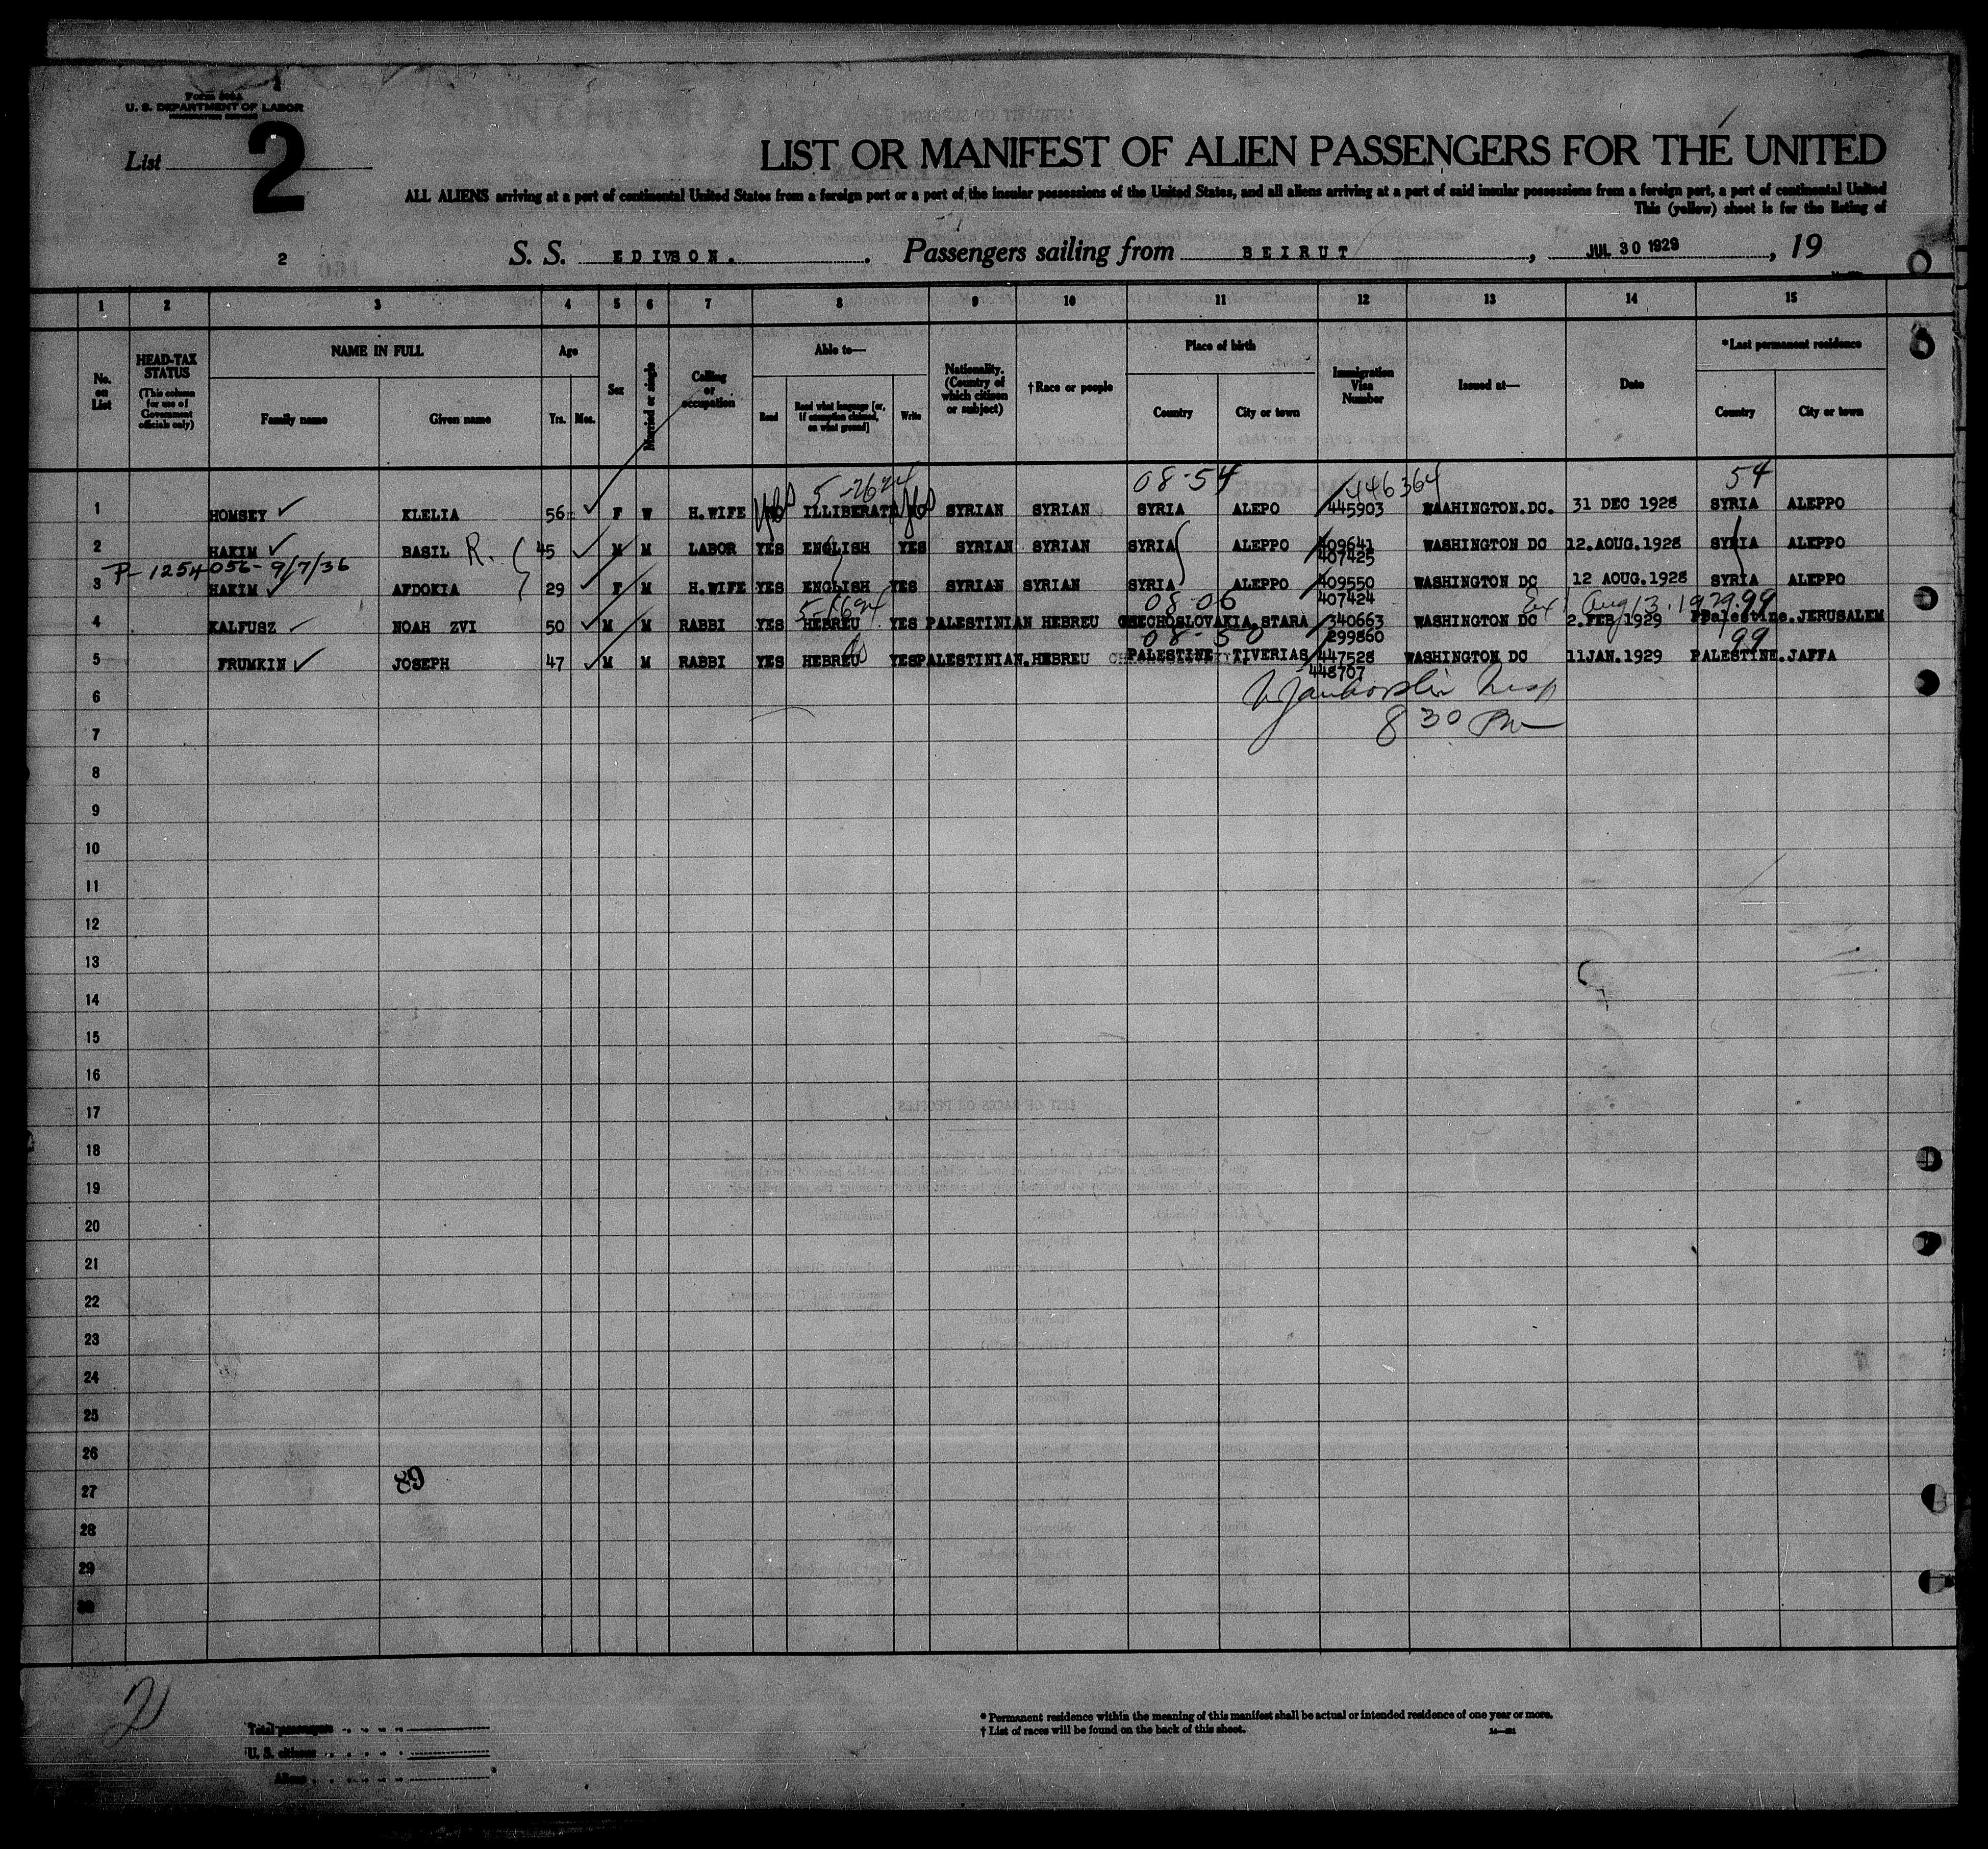 U. S. DEPARTMENT OF LABOR
List 2
LIST OR MANIFEST OF ALIEN PASSENGERS FOR THE UNITED
ALL ALIENS arriving at a port of continental United States from a foreign port or a port of the insular possessions of the United States, and all aliens arriving at a port of said insular possessions from a foreign port, a port of continental United
This (yellow) sheet is for the listing of
2 S. S. EDISON. Passengers sailing from BEIRUT, JUL 30 1929, 19
1 2 3 4 5 6 7 8 9 10 11 12 13 14 15
No. on List HEAD-TAX STATUS (This column for use of Government officials only) NAME IN FULL Family name Given name Age Yrs. Mos. Sex Married or single Calling or occupation Able to— Read Read what language [or, if exemption claimed, on what ground] Write Nationality. (Country of which citizen or subject) †Race or people Place of birth Country City or town Immigration Visa Number Issued at— Date *Last permanent residence Country City or town
5-2624 08-54 446364 54
1 HOMSEY KLELIA 56 F W H.WIFE NO yes ILLIBERATE NO yes SYRIAN SYRIAN SYRIA ALEPO 445903 WAAHINGTON.DC. 31 DEC 1928 SYRIA ALEPPO
2 HAKIM BASIL R. 45 M M LABOR YES ENGLISH YES SYRIAN SYRIAN SYRIA ALEPPO 409641 WASHINGTON DC 12.AOUG.1928 SYRIA ALEPPO
P-1254056-9/7/36 407425
3 HAKIM AFDOKIA 29 F M H.WIFE YES ENGLISH YES SYRIAN SYRIAN SYRIA ALEPPO 409550 WASHINGTON DC 12 AOUG.1928 SYRIA ALEPPO
08-06 407424 Ex Aug 13.1929. 99
4 KALFUSZ NOAH ZVI 50 M M RABBI YES HEBREU YES PALESTINIAN HEBREU CHECHOSLOVAKIA.STARA 340663 WASHINGTON DC 2.FEB 1929 Palestine.JERUSALEM
08-50 299860 99
5 FRUMKIN JOSEPH 47 M M RABBI YES HEBREU YES PALESTINIAN.HEBREU PALESTINE TIVERIAS 447528 WASHINGTON DC 11JAN.1929 PALESTINE.JAFFA
448707
6
8 30 Pm
7
8
9
10
11
12
13
14
15
16
17
LIST OF RACES OR PEOPLES
18
19
20
21
22
23
24
25
26
89
27
28
29
30
2
Total passengers
U. S. citizens
Aliens
* Permanent residence within the meaning of this manifest shall be actual or intended residence of one year or more.
† List of races will be found on the back of this sheet.